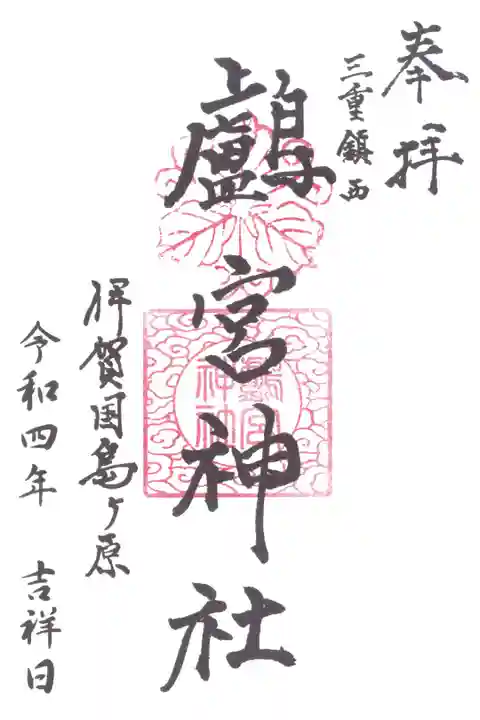 奉拝
三重鎮西
鸕宮神社
伊賀国島ヶ原
令和四年 吉祥日